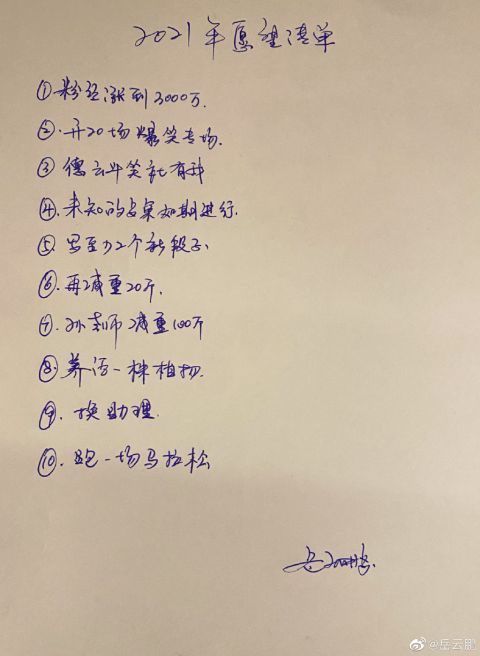 2021年愿望清单
①粉丝涨到3000万.
②.开20场爆笑专场.
③德云斗笑社有我
④.未知的安案如期进行.
⑤.写至少2个新段子.
⑥.再减重20斤.
⑦.孙老师减重100斤
⑧.养活一株植物.
⑨.换助理.
⑩.跑一场马拉松
岳云鹏.
@岳云鹏